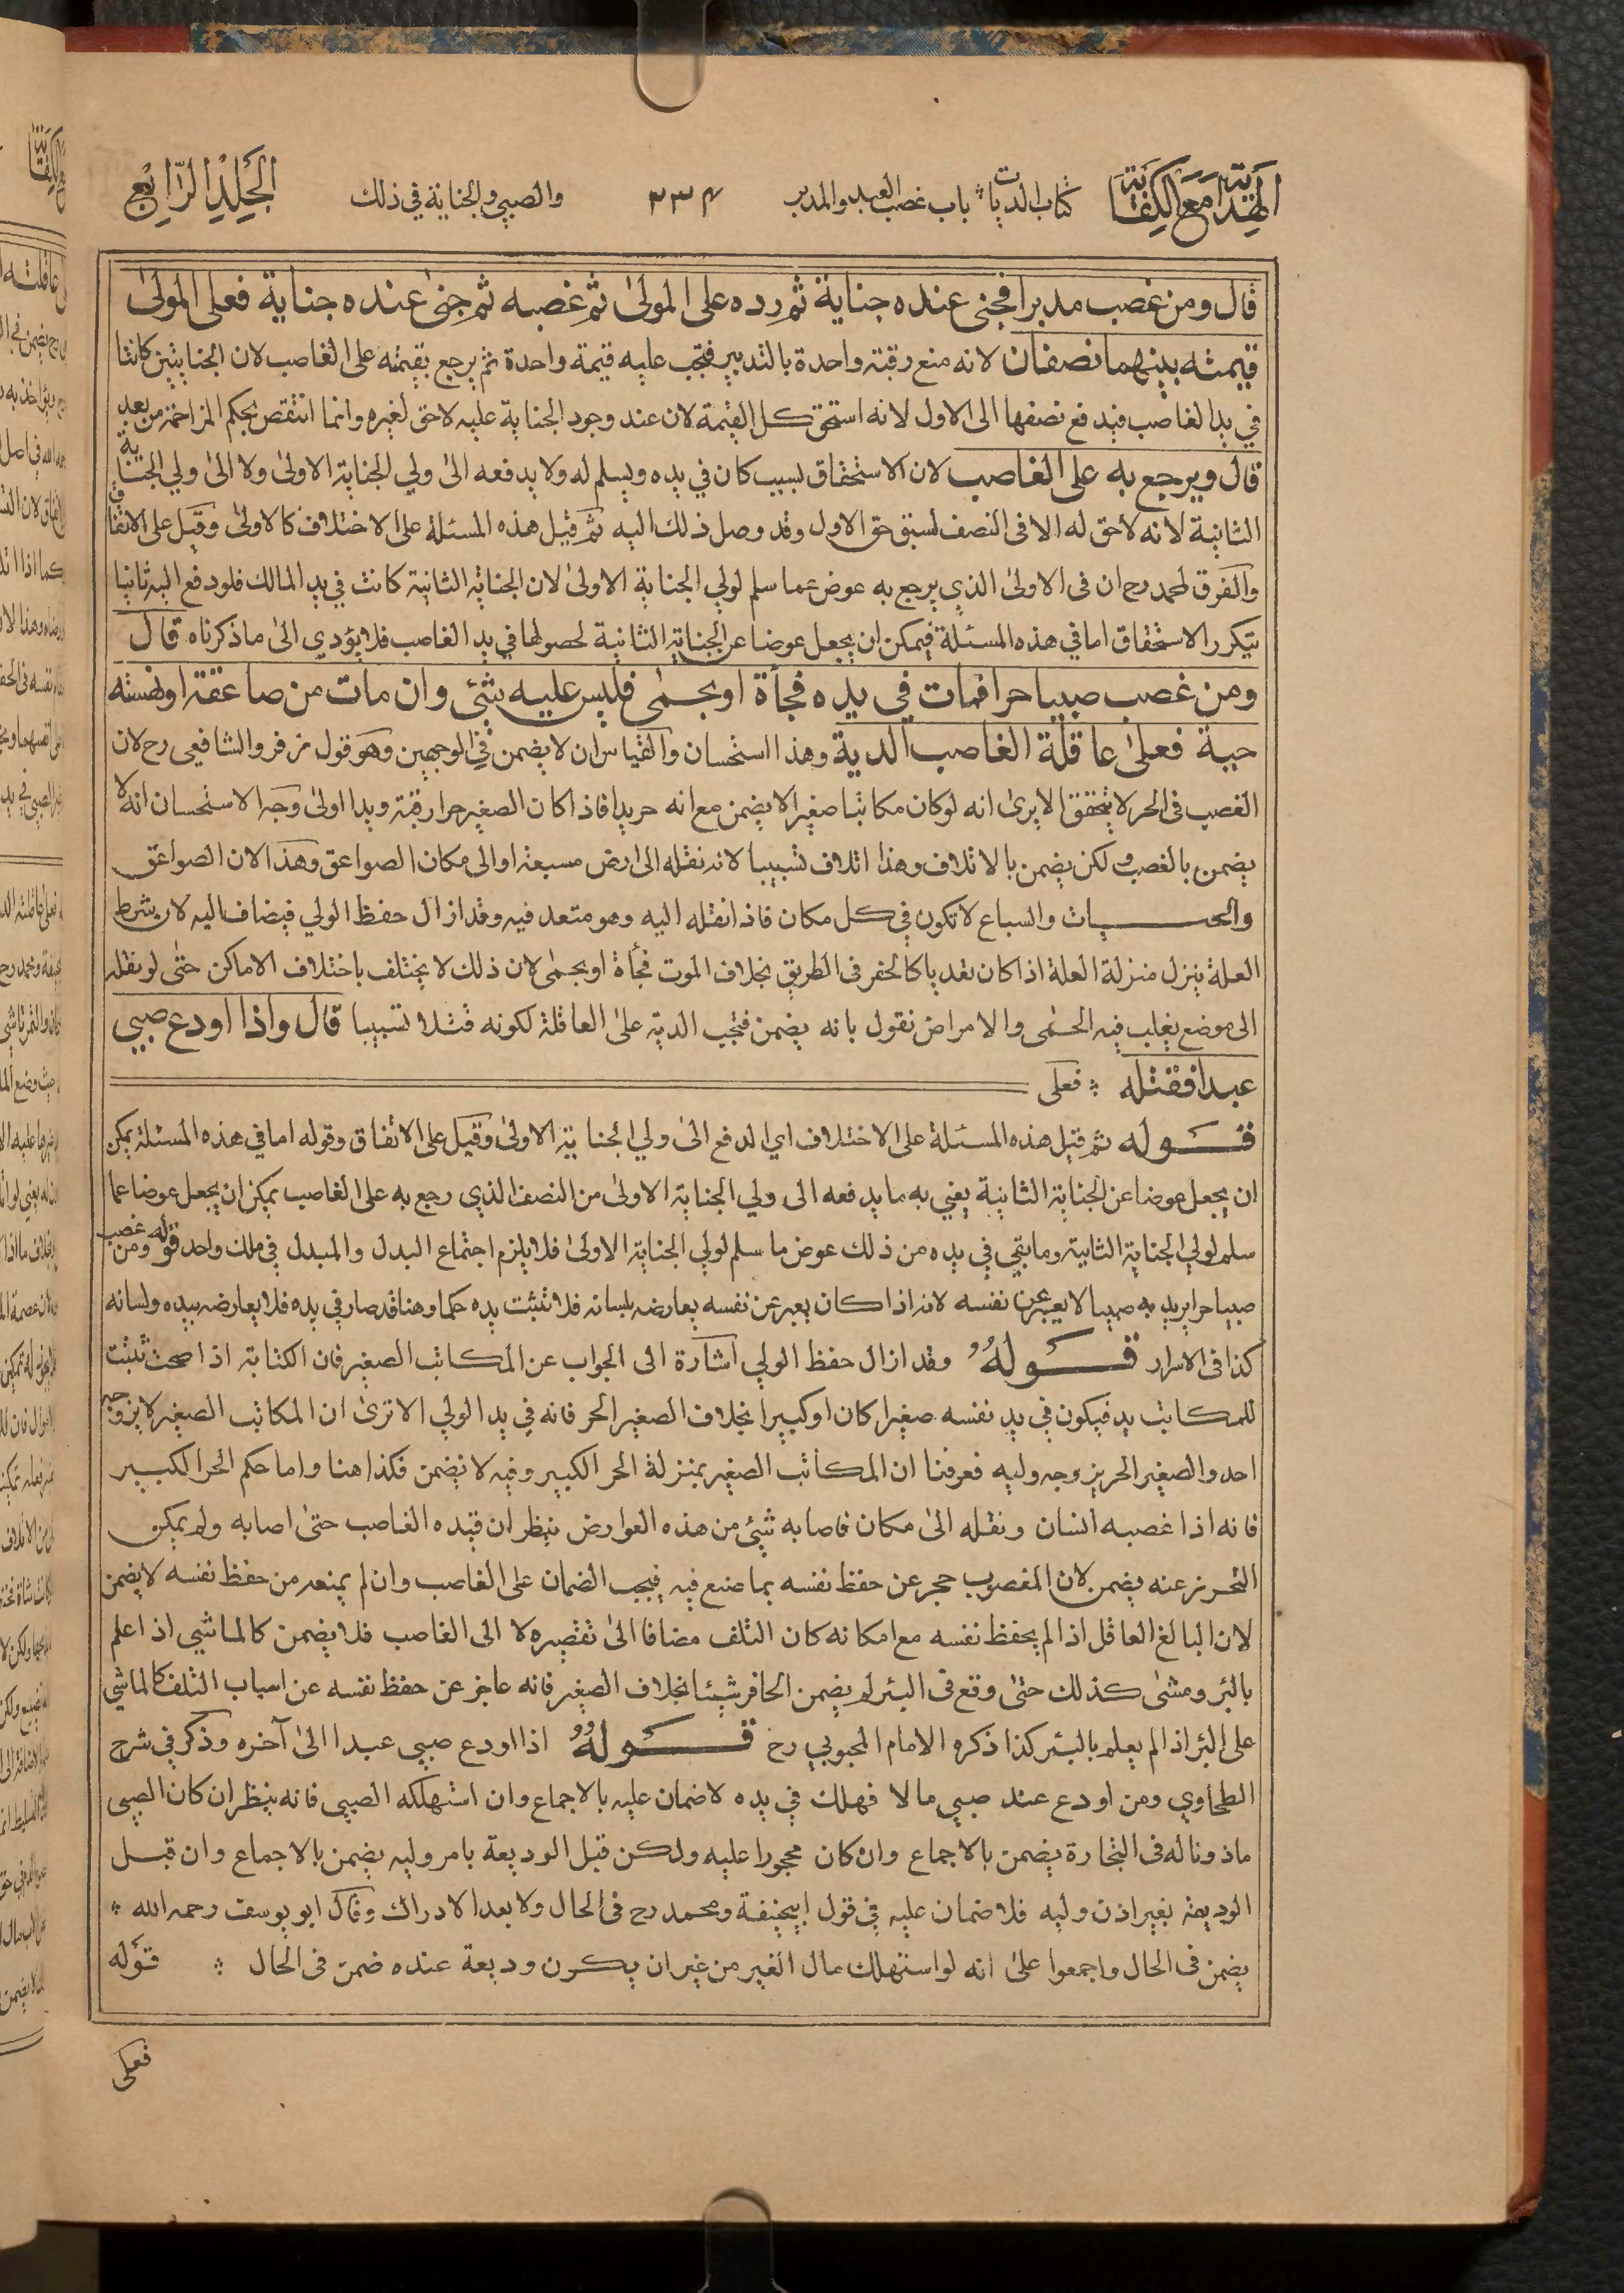 الهداية مع الكفاية كتاب الديات * باب غصب العبد والمدبر ٣٣٤ والصبي والجناية في ذلك الجلد الرابع
قال ومن غصب مدبرا فجنى عنده جناية ثم رده على المولىٰ ثم غصبه ثم جنىٰ عنده جناية فعلى المولىٰ
قيمته بينهما نصفان لانه منع رقبته واحدة بالتدبير فتجب عليه قيمة واحدة ثم يرجع بقيمته على الغاصب لان الجنايتين كانتا
في يد الغاصب فيدفع نصفها الى الاول لانه استحق كل القيمة لان عند وجود الجناية عليه لاحق لغيره وانما انتقص بحكم المزاحمة من بعد
قال ويرجع به على الغاصب لان الاستحقاق بسبب كان في يده ويسلم له ولا يدفعه الىٰ ولي الجناية الاولىٰ ولا الىٰ ولي الجناية
الثانية لانه لاحق له الا فى النصف لسبق حق الاول وقد وصل ذلك اليه ثم قيل هذه المسئلة على الاختلاف كالاولىٰ وقيل على الاتفاق
والفرق لمحمد رح ان فى الاولىٰ الذي يرجع به عوض عما سلم لولي الجناية الاولىٰ لان الجناية الثانية كانت في يد المالك فلو دفع اليه ثانيا
يتكرر الاستحقاق اما في هذه المسئلة فيمكن ان يجعل عوضا عن الجناية الثانية لحصولها في يد الغاصب فلا يؤدي الىٰ ما ذكرناه قال
ومن غصب صبيا حرا فمات في يده فجأة او بحمىٰ فليس عليه شئي وان مات من صاعقة او نهسته
حية فعلىٰ عاقلة الغاصب الدية وهذا استحسان والقياس ان لا يضمن في الوجهين وهو قول زفر والشافعي رح لان
الغصب فى الحر لا يتحقق الا يرىٰ انه لو كان مكاتبا صغيرا لا يضمن مع انه حر يدا فاذا كان الصغير حرا رقبة ويدا اولىٰ وجه الاستحسان انه لا
يضمن بالغصب ولكن يضمن بالاتلاف وهذا اتلاف تسبيبا لانه نقله الى ارض مسبعة او الى مكان الصواعق وهذا لان الصواعق
والحيات والسباع لا تكون في كل مكان فاذا نقله اليه وهو متعد فيه وقد ازال حفظ الولي فيضاف اليه لان شرط
العلة ينزل منزلة العلة اذا كان تعديا كالحفر فى الطريق بخلاف الموت فجأة او بحمىٰ لان ذلك لا يختلف باختلاف الاماكن حتىٰ لو نقله
الى موضع يغلب فيه الحمىٰ والامراض نقول بانه يضمن فتجب الدية علىٰ العاقلة لكونه قتلا تسبيبا قال واذا اودع صبي
عبدا فقتله * فعلى
قوله ثم قيل هذه المسئلة على الاختلاف اي الدفع الىٰ ولي الجناية الاولىٰ وقيل على الاتفاق وقوله اما في هذه المسئلة يمكن
ان يجعل عوضا عن الجناية الثانية يعني به ما يدفعه الى ولي الجناية الاولىٰ من النصف الذي رجع به على الغاصب يمكن ان يجعل عوضا عما
سلم لولي الجناية الثانية وما بقي في يده من ذلك عوض ما سلم لولي الجناية الاولىٰ فلا يلزم اجتماع البدل والمبدل في ملك واحد قوله ومن غصب
صبيا حرا يريد به صبيا لا يعبر عن نفسه لانه اذا كان يعبر عن نفسه يعارضه بلسانه فلا تثبت يده حكما وهنا قد صار في يده فلا يعارضه بيده ولسانه
كذا فى الاسرار قوله وقد ازال حفظ الولي اشارة الى الجواب عن المكاتب الصغير فان الكتابة اذا صحت تثبت
للمكاتب يد فيكون في يد نفسه صغيرا كان او كبيرا بخلاف الصغير الحر فانه في يد الولي الا ترىٰ ان المكاتب الصغير لا يزوجه
احد والصغير الحر يزوجه وليه فعرفنا ان المكاتب الصغير بمنزلة الحر الكبير وفيه لا يضمن فكذا هنا واما حكم الحر الكبير
فانه اذا غصبه انسان ونقله الىٰ مكان فاصابه شئي من هذه العوارض ينظر ان قيده الغاصب حتىٰ اصابه ولم يمكن
التحرز عنه يضمن لان المغصوب حجر عن حفظ نفسه بما صنع فيه فيجب الضمان على الغاصب وان لم يمنعه من حفظ نفسه لا يضمن
لان البالغ العاقل اذا لم يحفظ نفسه مع امكانه كان التلف مضافا الىٰ تقصيره لا الى الغاصب فلا يضمن كالماشي اذا علم
بالبئر ومشىٰ كذلك حتىٰ وقع فى البئر لم يضمن الحافر شيئا بخلاف الصغير فانه عاجز عن حفظ نفسه عن اسباب التلف كالماشي
على البئر اذا لم يعلم بالبئر كذا ذكره الامام المحبوبي رح قوله اذا اودع صبي عبدا الىٰ آخره وذكر في شرح
الطحاوي ومن اودع عند صبي مالا فهلك في يده لا ضمان عليه بالاجماع وان استهلكه الصبي فانه ينظر ان كان الصبي
ماذونا له فى التجارة يضمن بالاجماع وان كان محجورا عليه ولكن قبل الوديعة بامر وليه يضمن بالاجماع وان قبل
الوديعة بغير اذن وليه فلا ضمان عليه في قول ابيحنيفة ومحمد رح فى الحال ولا بعد الادراك وقال ابو يوسف رحمه الله *
يضمن فى الحال واجمعوا علىٰ انه لو استهلك مال الغير من غير ان يكون وديعة عنده ضمن فى الحال * قوله
فعلى